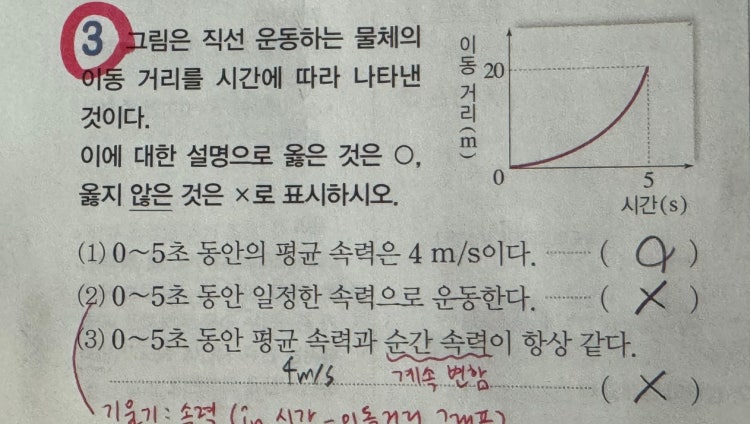 3 그림은 직선 운동하는 물체의
이동 거리를 시간에 따라 나타낸
것이다.
이에 대한 설명으로 옳은 것은 ○,
옳지 않은 것은 ×로 표시하시오.
이동 거리(m)
20
0
5
시간(s)
(1) 0~5초 동안의 평균 속력은 4 m/s이다. ( O )
(2) 0~5초 동안 일정한 속력으로 운동한다. ( X )
(3) 0~5초 동안 평균 속력과 순간 속력이 항상 같다.
4m/s 계속 변함
( X )
기울기 : 속력 (in 시간 - 이동거리 그래프)